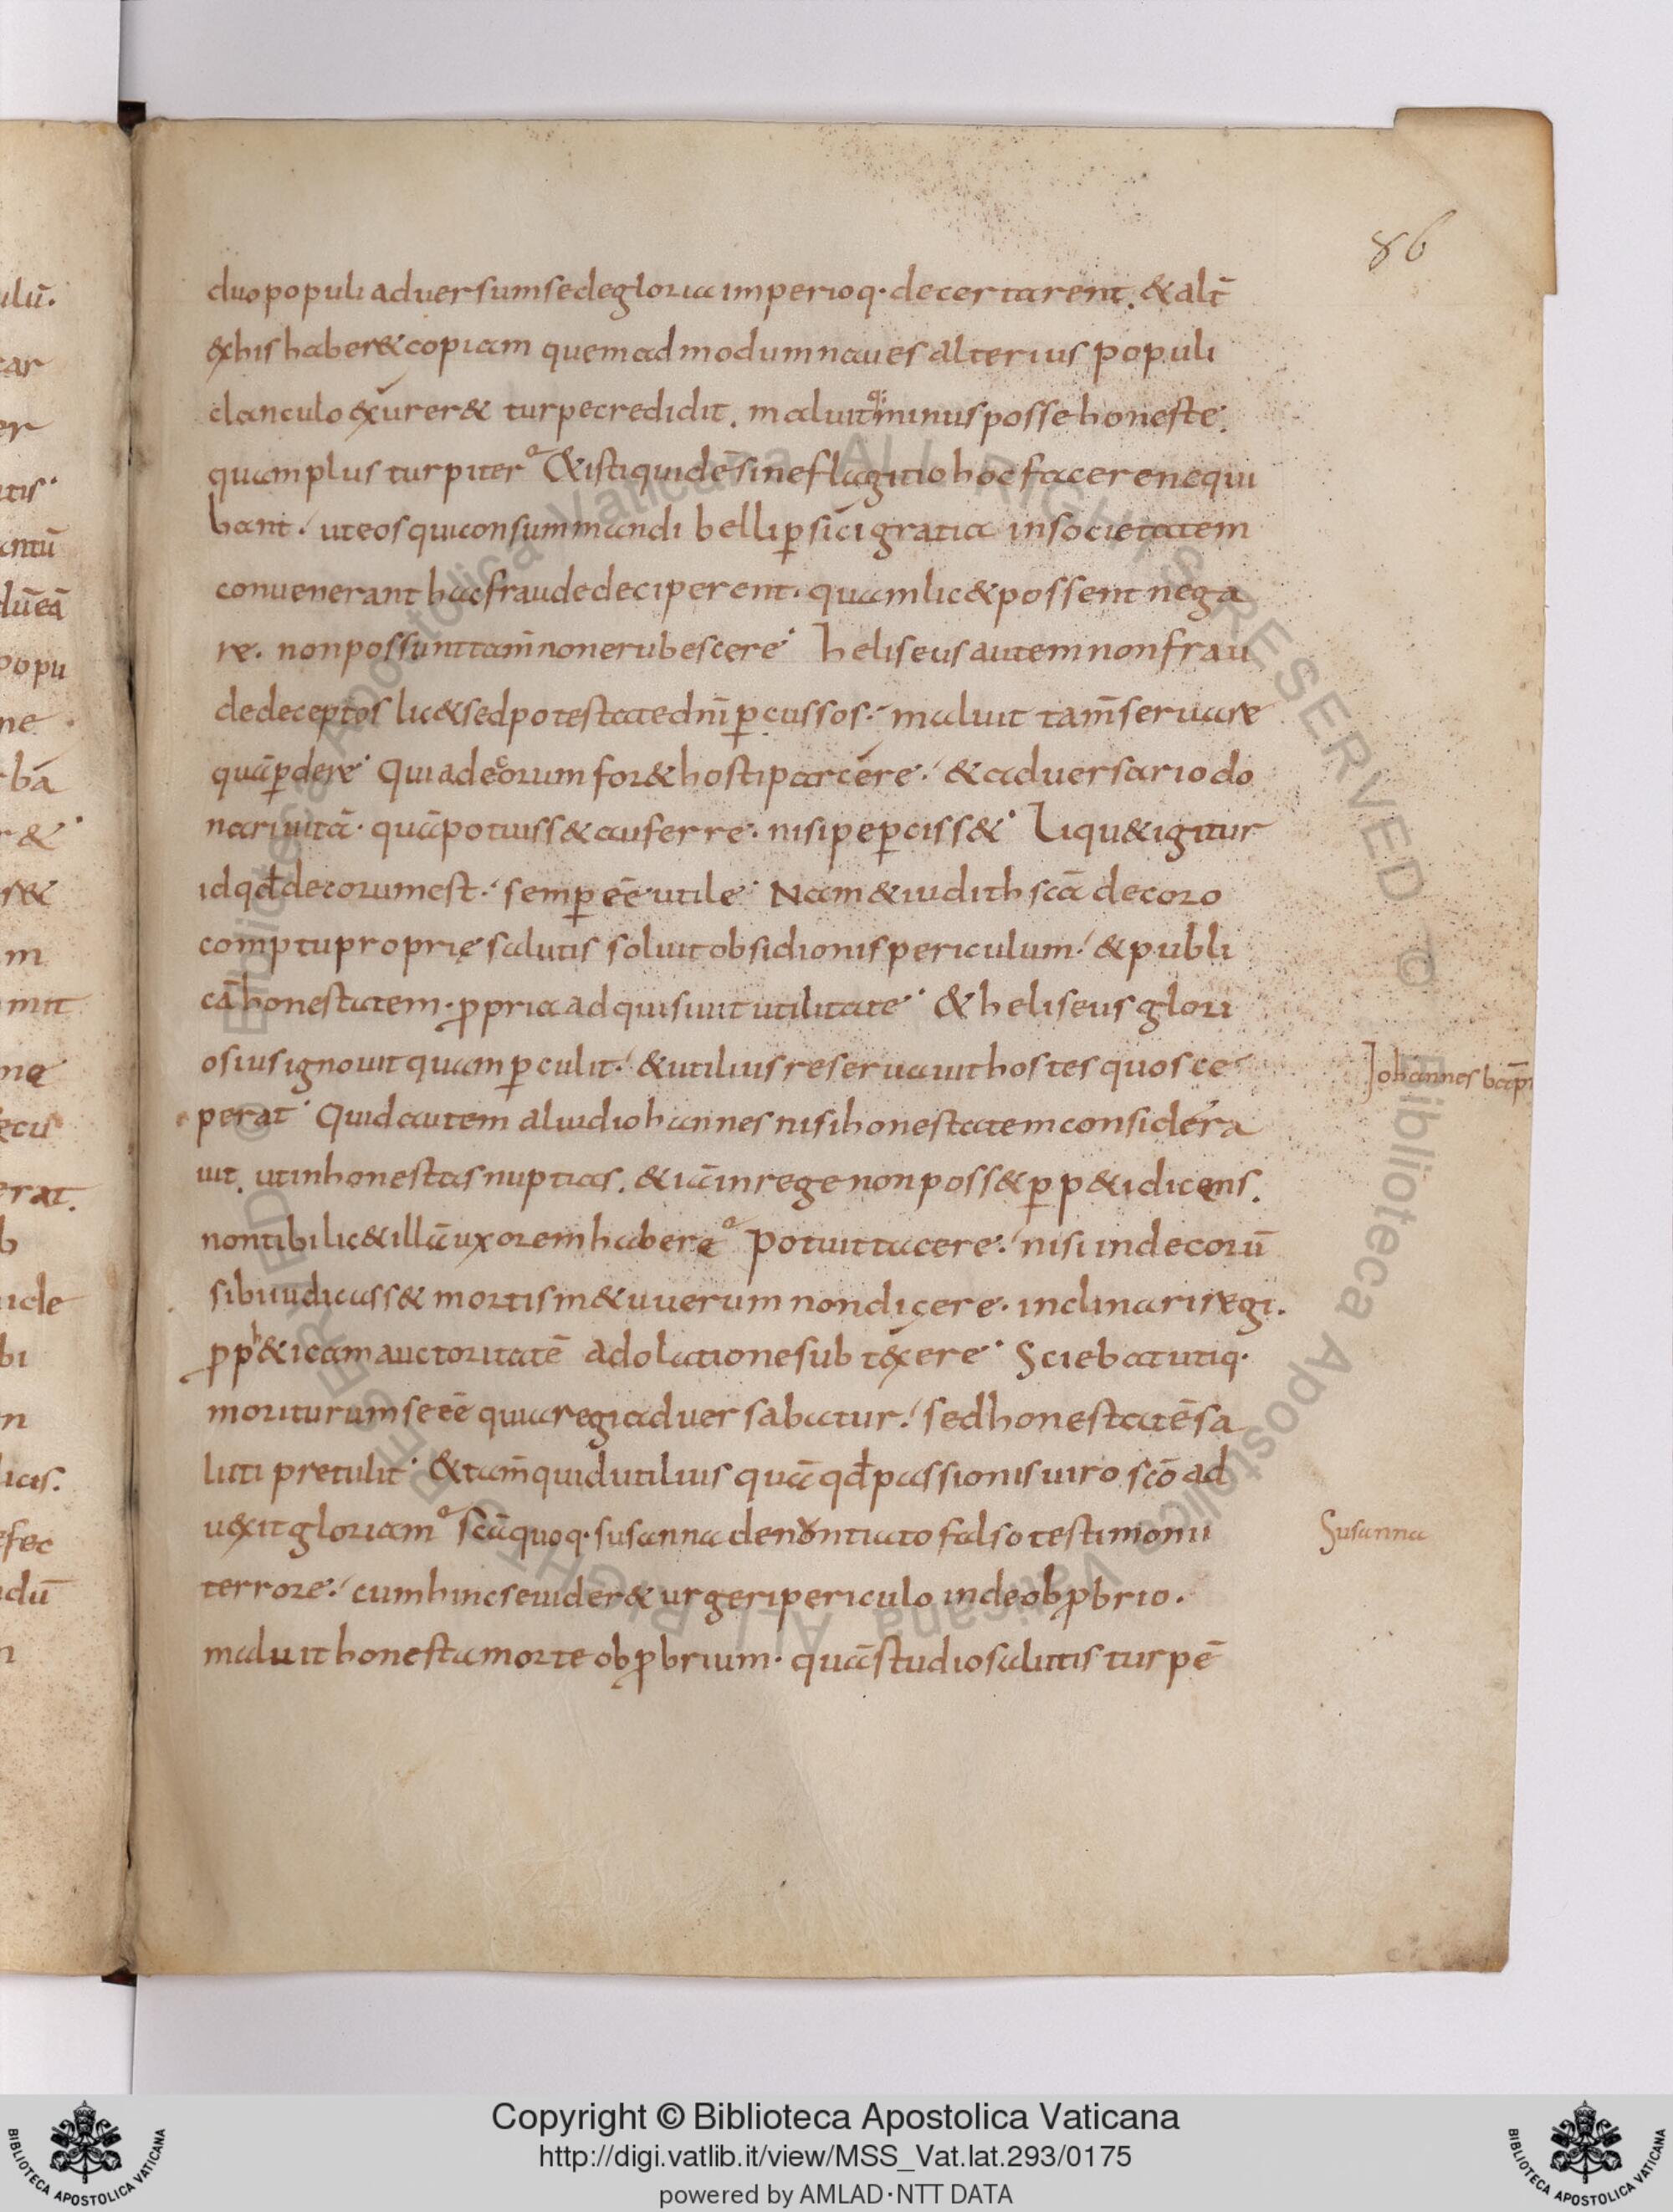 86
duo populi adversum se de gloria imperioq· decertarent. & alt̄
ex his haber& copiam quemadmodum naues alterius populi
clanculo exurer& turpe credidit. maluitq· minus posse honeste.
quam plus turpiter Et isti quidē sine flagitio hoc facere nequi
bant. ut eos qui consummandi belli p̱sici gratia in societatem
conuenerant hac fraude deciperent. quam lic& possent nega
re. non possunt tam̄ non erubescere· heliseus autem non frau
de deceptos lic& sed potestate dn̄i p̱cussos. maluit tam̄ seruare
quā p̱dere· Quia decorum for& hosti parcere. & aduersario do
nari uitā. quā potuiss& auferre. nisi pep̱ciss&· Liqu& igitur
id qđ decorum est. semp̱ eē utile· Nam & iudith scā decoro
comptu proprię salutis soluit obsidionis periculum. & publi
cā honestatem. p̱pria adquisiuit utilitate· & heliseus glori
osius ignouit quam p̱culit. & utilius reseruauit hostes quos ce
perat· Quid autem aliud iohannes nisi honestatem considera
uit. ut inhonestas nuptias. & iā in rege non poss& p̱p&i dicens.
non tibi lic& illā uxorem habere Potuit tacere. nisi indecorū
sibi iudicass& mortis m&u uerum non dicere. inclinari regi.
p̱ph&icam auctoritatē adolatione subtexere· Sciebat utiq·
moriturum se eē quia regi aduersabatur. sed honestatē sa
luti pretulit· & tam̄ quid utilius quā qđ passionis uiro scō ad
uexit gloriam Scā quoq· susanna denontiato falso testimonii
terrore. cum hinc se uider& urgeri periculo inde obp̱brio.
maluit honesta morte obp̱brium. quā studio salutis turpē
Johannes bap̄t
Susanna
Copyright © Biblioteca Apostolica Vaticana
http://digi.vatlib.it/view/MSS_Vat.lat.293/0175
powered by AMLAD·NTT DATA
BIBLIOTECA APOSTOLICA VATICANA
BIBLIOTECA APOSTOLICA VATICANA